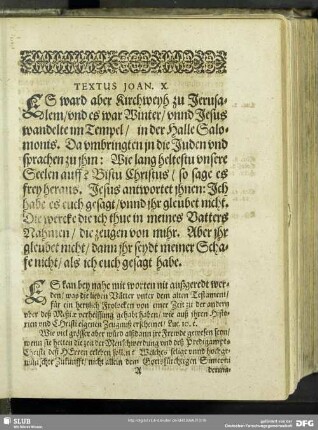 TEXTUS JOAN. X.
ES ward aber Kirchweyh zu Jerusa-
lem/ vnd es war Winter/ vnnd Jesus
wandelte im Tempel/ in der Halle Salo-
monis. Da vmbringten jn die Juden vnd
sprachen zu jhm: Wie lang heltestu vnsere
Seelen auff? Bistu Christus/ so sage es
frey heraus. Jesus antwortet jhnen: Ich
habe es euch gesagt/ vnnd jhr gleubet nicht.
Die wercke die ich thue in meines Vatters
Nahmen/ die zeugen von mihr. Aber jhr
gleubet nicht/ dann jhr seydt meiner Scha-
fe nicht/ als ich euch gesagt habe.
ES kan bey nahe mit worten nit außgeredt wer-
den/ was die lieben Vätter vnter dem alten Testament/
für ein hertzlich Frolocken von einer Zeit zu der andern
vber deß Messiæ verheissung gehabt haben/ wie auß ihren Histo-
rien vnd Christi eigenen Zeugnuß erscheinet/ Luc. 10. c.
Wie viel grösser aber würd alßdann jhr Frewde gewesen seyn/
wenn sie hetten die zeit der Menschwerdung vnd deß Predigampts
Christi deß HErren erleben sollen? Welches selige vnnd hochge-
wünschter Zukunfft/ nicht allein dem Gottsfürchtigen Simeoni
A
SLUB
Wir führen Wissen.
gefördert von der
Deutschen Forschungsgemeinschaft
DFG